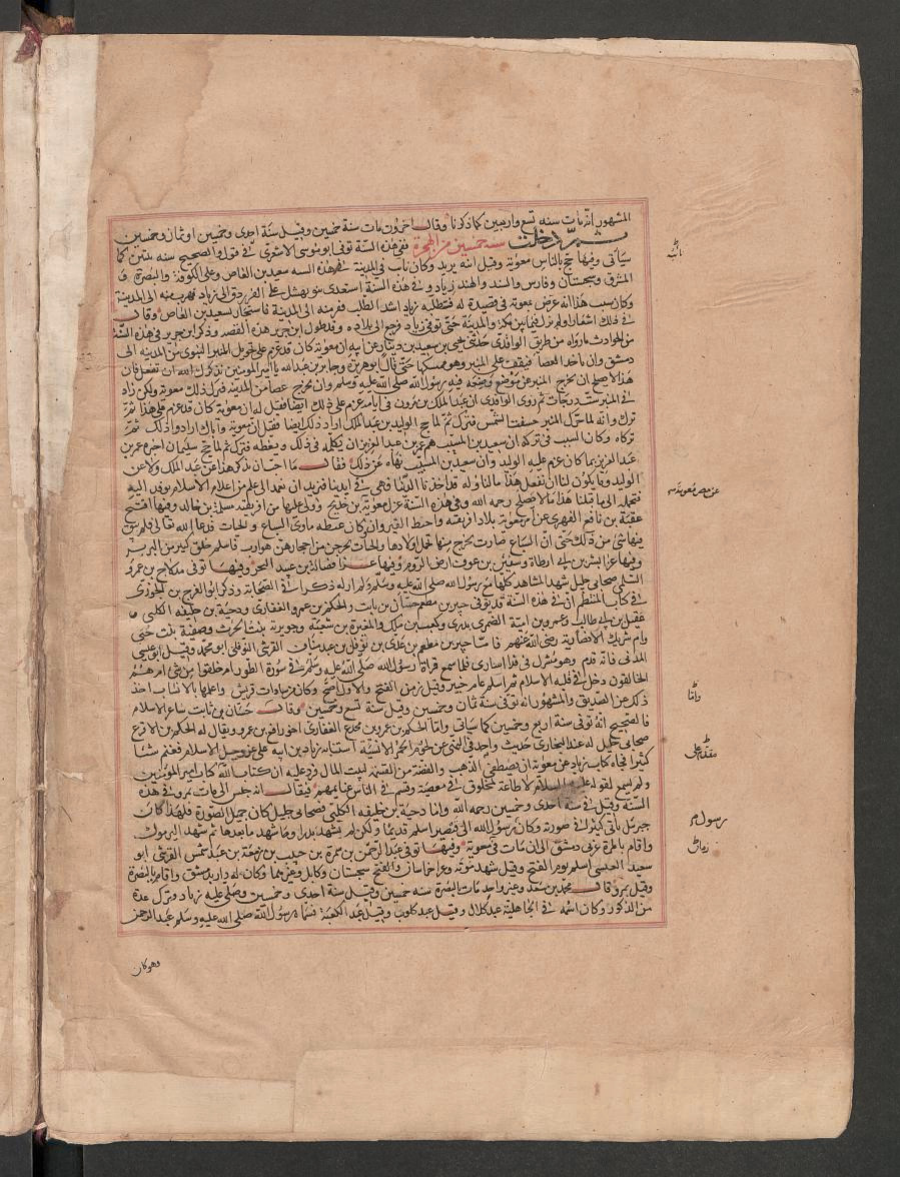 المشهور انه مات سنه تسع واربعين كما ذكرنا وقال اخرون مات سنة خمسين وقيل سنة احدى وخمسين او ثمان وخمسين
ثم دخلت سنة خمسين من الهجرة ففي هذه السنة توفي ابو موسى الاشعري في قول والصحيح سنه ثنتين كما
سياتي وفيها حج بالناس معوية وقيل ابنه يزيد وكان نائب في المدينة في هذه السنه سعيد بن العاص وعلى الكوفة والبصرة و
المشرق وسجستان وفارس والسند والهند زياد وفي هذه السنة استعدى بنو نهشل على الفرزدق الى زياد فهرب منه الى المدينة
وكان سبب هذا انه عرض بمعوية في قصيدة له فتطلبه زياد اشد الطلب ففر منه الى المدينة فاستجار بسعيد بن العاص وقال
في ذلك اشعارا ولم يزل فيما بين مكة والمدينة حتى توفي زياد فرجع الى بلاده وقد طول ابن جرير هذه القصه وذكر ابن جرير في هذه السنة
من الحوادث ما رواه من طريق الواقدي حدثني يحيى بن سعيد بن دينار عن ابيه ان معوية كان قد عزم على تحويل المنبر النبوي من المدينه الى
دمشق وان ياخذ العصا فيقف على المنبر وهو ممسكها حتى قال ابو هريرة وجابر بن عبد الله يا امير المومنين نذكرك الله ان تفعل فان
هذا لا يصلح ان تخرج المنبر من موضع وضعه فيه رسول الله صلى الله عليه وسلم وان تخرج عصا من المدينه فترك ذلك معوية ولكن زاد
في المنبر ست درجات ثم روى الواقدي ان عبد الملك بن مرون في ايامه عزم على ذلك ايضا فقيل له ان معوية كان قد عزم على هذا ثم
ترك وانه لما حرك المنبر خسفت الشمس فترك ثم لما حج الوليد بن عبد الملك اراد ذلك ايضا فقيل ان معوية واباك ارادوا ذلك ثم
تركاه وكان السبب في تركه ان سعيد بن المسيب كلم عمر بن عبد العزيز ان يكلمه في ذلك ويعظه فترك ثم لما حج سليمان اخبره عمر بن
عبد العزيز بما كان عزم عليه الوليد وان سعيد بن المسيب نهاه عن ذلك فقال ما احب ان يذكر هذا عن عبد الملك ولا عن
الوليد وما يكون لنا ان نفعل هذا ما لنا وله قد اخذنا الدنيا فهي في ايدينا فنريد ان نعمد الى علم من اعلام الاسلام يوفد اليه
فنحمله الى ما قبلنا هذا ما لا يصلح رحمه الله وفي هذه السنة عزل معوية بن خديج وولى عليها من افريقيه مسلمة بن مخلد وفيها افتتح
عقبة بن نافع الفهري عن امر معوية بلاد افريقيه واختط القيروان وكان غيضه ماوى السباع والحيات فدعا الله تعالى فلم يبق
فيها شي من ذلك حتى ان السباع صارت تخرج منها تحمل اولادها والحيات تخرجن من اجحارهن هوارب فاسلم خلق كثير من البربر
وفيها غزا بسر بن ابي ارطاة وسفين بن عوف ارض الروم وفيها غزا فضالة بن عبيد البحر وفيها توفي مدلاج بن عمرو
السلمي صحابي جليل شهد المشاهد كلها مع رسول الله صلى الله عليه وسلم ولم ار له ذكرا في الصحابة وذكر ابو الفرج بن الجوزي
في كتابه المنتظم ان في هذه السنة قد توفي جبير بن مطعم وحسان بن ثابت والحكم بن عمرو الغفاري ودحية بن خليفه الكلبي و
عقيل بن ابي طالب وعمرو بن امية الضمري بدري وكعب بن مالك والمغيرة بن شعبة وجويرية بنت الحرث وصفية بنت حيي
وام شريك الانصارية رضي الله عنهم فاما جبير بن مطعم بن عدي بن نوفل بن عبد مناف القرشي النوفلي ابو محمد وقيل ابو عدي
المدني فانه قدم وهو مشرك في فدا اسارى فلما سمع قراة رسول الله صلى الله عليه وسلم في سورة الطور ام خلقوا من غير شي ام هم
الخالقون دخل في قلبه الاسلام ثم اسلم عام خيبر وقيل زمن الفتح والاول اصح وكان من سادات قريش واعلمها بالانساب اخذ
ذلك عن الصديق والمشهور انه توفي سنة ثمان وخمسين وقيل سنة تسع وخمسين وقال حسان بن ثابت شاعر الاسلام
فالصحيح انه توفي سنة اربع وخمسين كما سياتي واما الحكم بن عمرو بن مجدع الغفاري اخو رافع بن عمرو ويقال له الحكم بن الاقرع
صحابي جليل له عند البخاري حديث واحد في النهي عن لحوم الحمر الانسية استنابه زياد بن ابيه على غزو جبل الاسلام فغنم شيا
كثيرا فجاه كتاب زياد عن معوية ان يصطفي الذهب والفضة من القسمة لبيت المال فرد عليه ان كتاب الله كان قبل امير المومنين
ولم يسمع لقوله عليه السلام لا طاعة لمخلوق في معصية وقسم في الناس غنايمهم فيقال انه حبس الى مات بمرو في هذه
السنة وقيل في سنة احدى وخمسين رحمه الله واما دحية بن خليفه الكلبي فصحابي جليل كان جميل الصورة فلهذا كان
جبريل ياتي كثيرا في صورته وكان رسول الله الى قيصر اسلم قديما ولكن لم يشهد بدرا وما شهد ما بعدها ثم شهد اليرموك
واقام بالمزة غربي دمشق الى ان مات في معوية وفيها توفي عبد الرحمن بن سمرة بن حبيب بن ربيعة بن عبد شمس القرشي ابو
سعيد العبشمي اسلم يوم الفتح وقيل شهد موته وغزا خراسان وافتتح سجستان وكابل وغيرهما وكان له دار بدمشق واقام بالبصرة
وقيل بمرو وقال محمد بن سعد وغير واحد مات بالبصرة سنه خمسين وقيل سنة احدى وخمسين وصلى عليه زياد وترك عدة
من الذكور وكان اسمه في الجاهلية عبد كلال وقيل عبد كلوب وقيل عبد الكعبة فسماه رسول الله صلى الله عليه وسلم عبد الرحمن
وهو كان